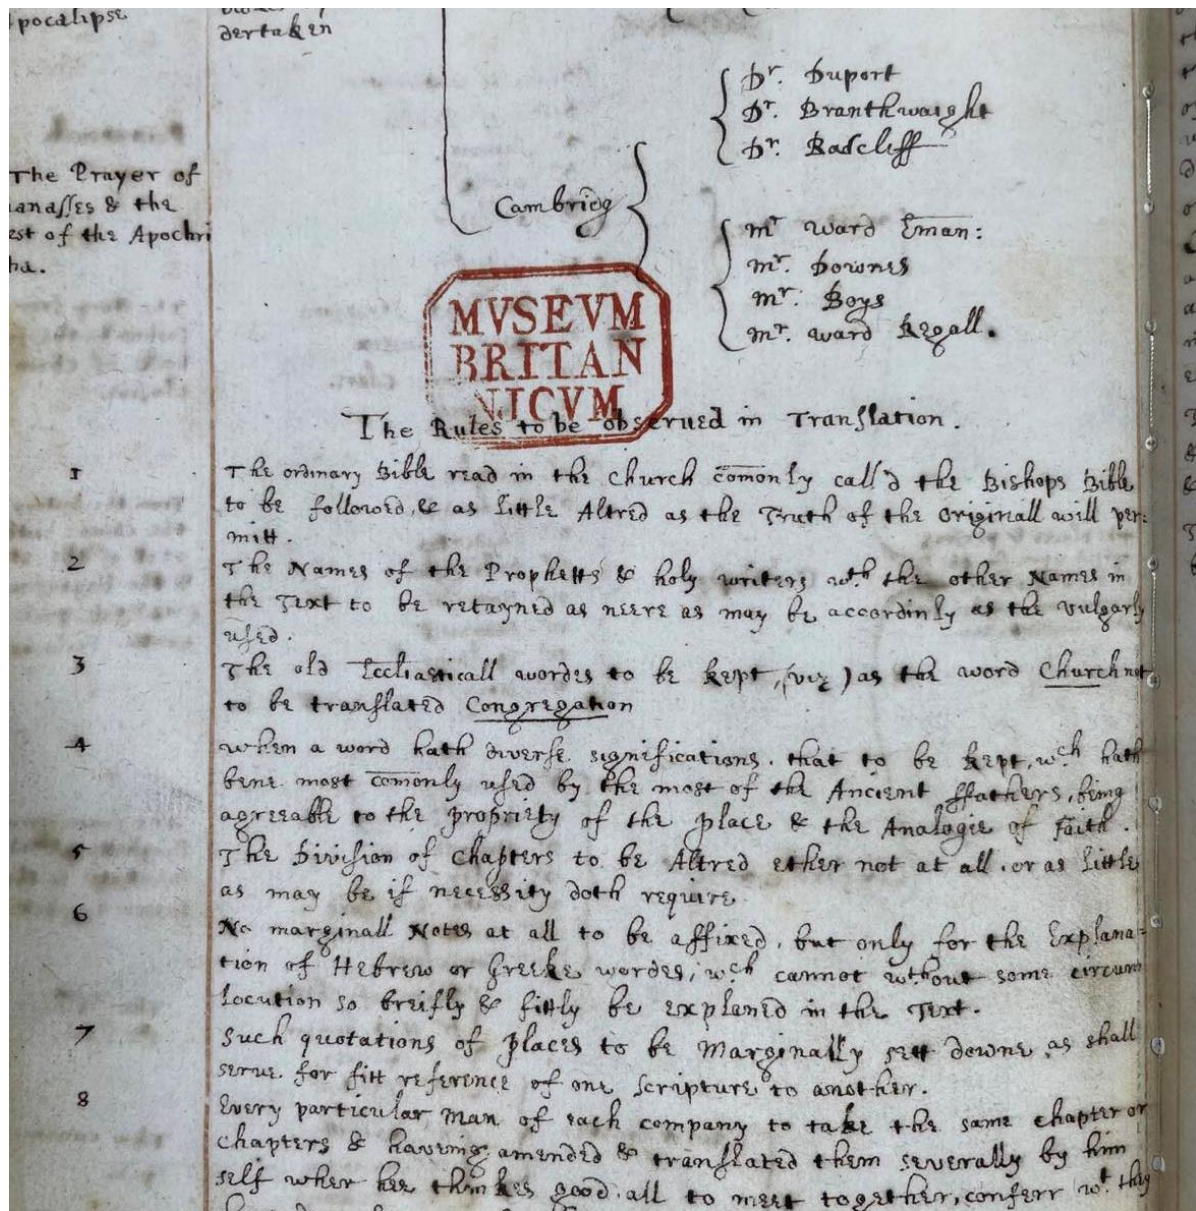 pocalipse
dertaken
Dr. Duport
Dr. Branthwaight
Dr. Radcliff
The Prayer of
anasses & the
est of the Apochri
ha.
Cambridg
mr ward Eman:
mr. Downes
mr. Boys
mr. ward Regall.
MVSEVM
BRITAN
NICVM
The Rules to be observed in Translation.
1 The ordinary Bible read in the Church cōmonly call'd the Bishops Bible
to be followed, & as little Altred as the Truth of the originall will per:
mitt.
2 The Names of the Prophetts & holy writers wth the other Names in
the Text to be retayned as neere as may be accordinly as the vulgarly
used.
3 The old Eccliasticall wordes to be kept, (viz) as the word Church not
to be translated Congregation
4 when a word hath diverse significations. that to be kept, wch hath
bene most cōmonly used by the most of the Ancient ffathers, being
agreeable to the propriety of the place & the Analogie of faith.
5 The Division of chapters to be Altred ether not at all. or as little
as may be if necessity doth require.
6 No marginall Notes at all to be affixed, but only for the Explana=
tion of Hebrew or Greeke wordes, wch cannot wthout some circum
locution so breifly & fittly be explaned in the Text.
7 Such quotations of places to be Marginally sett downe, as shall
serve for fitt reference of one scripture to another.
8 Every particular man of each company to take the same chapter or
Chapters & haveing amended & translated them severally by him
self wher hee thinkes good, all to meet together, conferr wt they